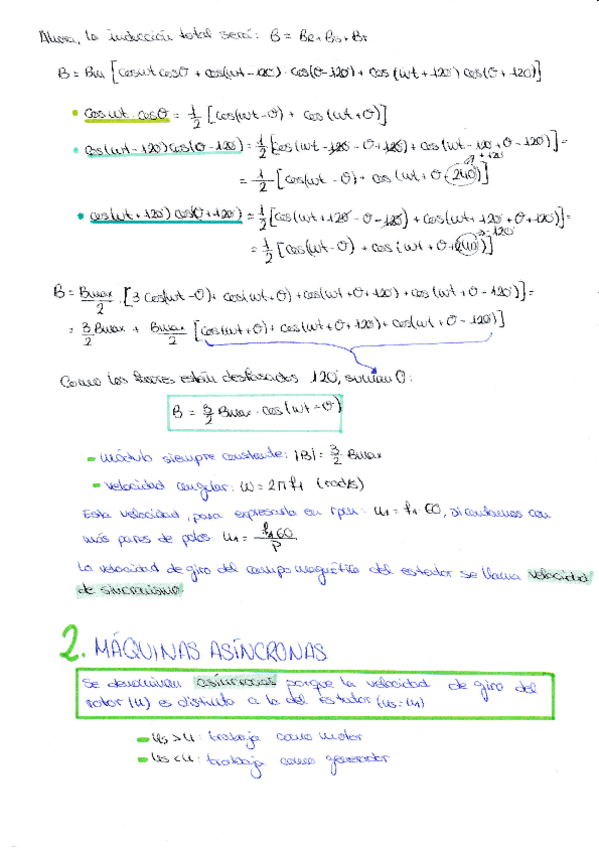 Ahora, la inducción total será: B = BR + BS + BT
B = Bm [cosωt cosθ + cos(ωt-120) · cos(θ-120) + cos(ωt+120) cos(θ+120)]
• cosωt · cosθ = 1/2 [cos(ωt-θ) + cos(ωt+θ)]
• cos(ωt-120) cos(θ-120) = 1/2 [cos(ωt-120-θ+120) + cos(ωt-120+θ-120)] =
= 1/2 [cos(ωt-θ) + cos(ωt+θ-240)] +120
• cos(ωt+120) cos(θ+120) = 1/2 [cos(ωt+120-θ-120) + cos(ωt+120+θ+120)] =
= 1/2 [cos(ωt-θ) + cos(ωt+θ+240)] -120
B = Bmax/2 · [3cos(ωt-θ) + cos(ωt+θ) + cos(ωt+θ+120) + cos(ωt+θ-120)] =
= 3/2 Bmax + Bmax/2 [cos(ωt+θ) + cos(ωt+θ+120) + cos(ωt+θ-120)]
Como los están desfasados 120°, suman 0:
B = 3/2 Bmax · cos(ωt-θ)
- módulo siempre constante: |B| = 3/2 Bmax
- velocidad angular: ω = 2πf1 (rad/s)
Esta velocidad, para expresarla en rpm: n1 = f1 60, si contamos con
más pares de polos n1 = f1 60/P
La velocidad de giro del campo magnético del estator se llama velocidad
de sincronismo
2. MÁQUINAS ASÍNCRONAS
Se denominan asíncronas porque la velocidad de giro del
rotor (n) es distinto a la del estator (ns=n1)
- ns > n: trabaja como motor
- ns < n: trabaja como generador